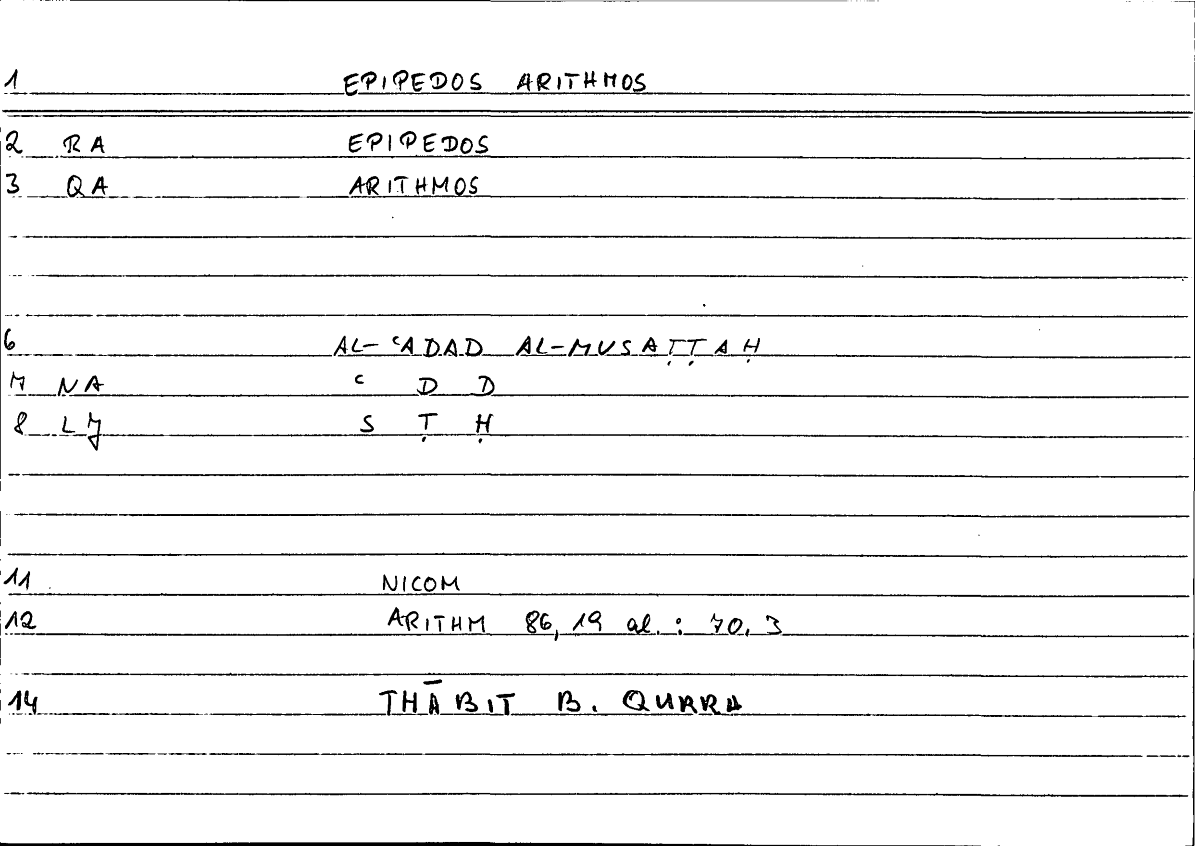 1 EPIPEDOS ARITHMOS
2 RA EPIPEDOS
3 QA ARITHMOS
6 AL-ʿADAD AL-MUSAṬṬAḤ
7 NA ʿ D D
8 LJ S Ṭ Ḥ
11 NICOM
12 ARITHM 86,19 al. : 70,3
14 THĀBIT B. QURRA